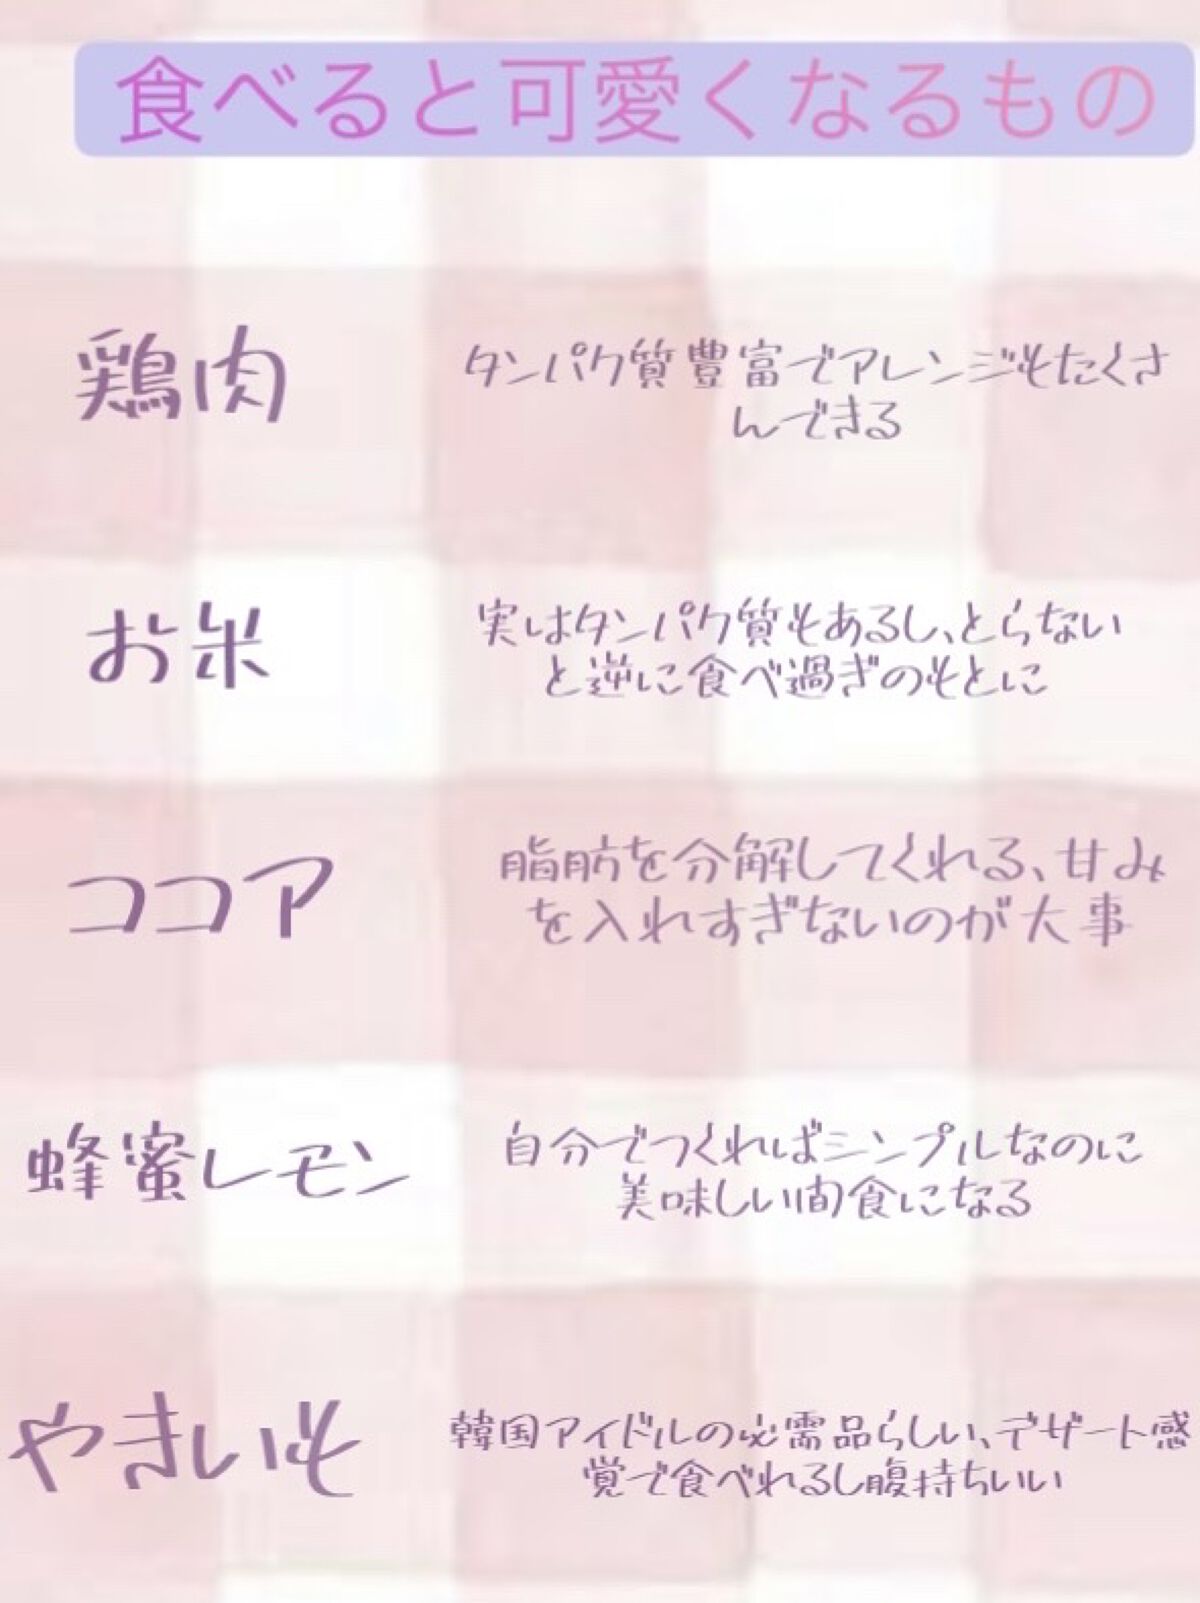 食べると可愛くなるもの
鶏肉
タンパク質豊富でアレンジもたくさ
んできる
お米
実はタンパク質もあるし、とらない
と逆に食べ過ぎのもとに
ココア
脂肪を分解してくれる、甘み
を入れすぎないのが大事
蜂蜜レモン
自分でつくればシンプルなのに
美味しい間食になる
やきいも
韓国アイドルの必需品らしい、デザート感
覚で食べれるし腹持ちいい